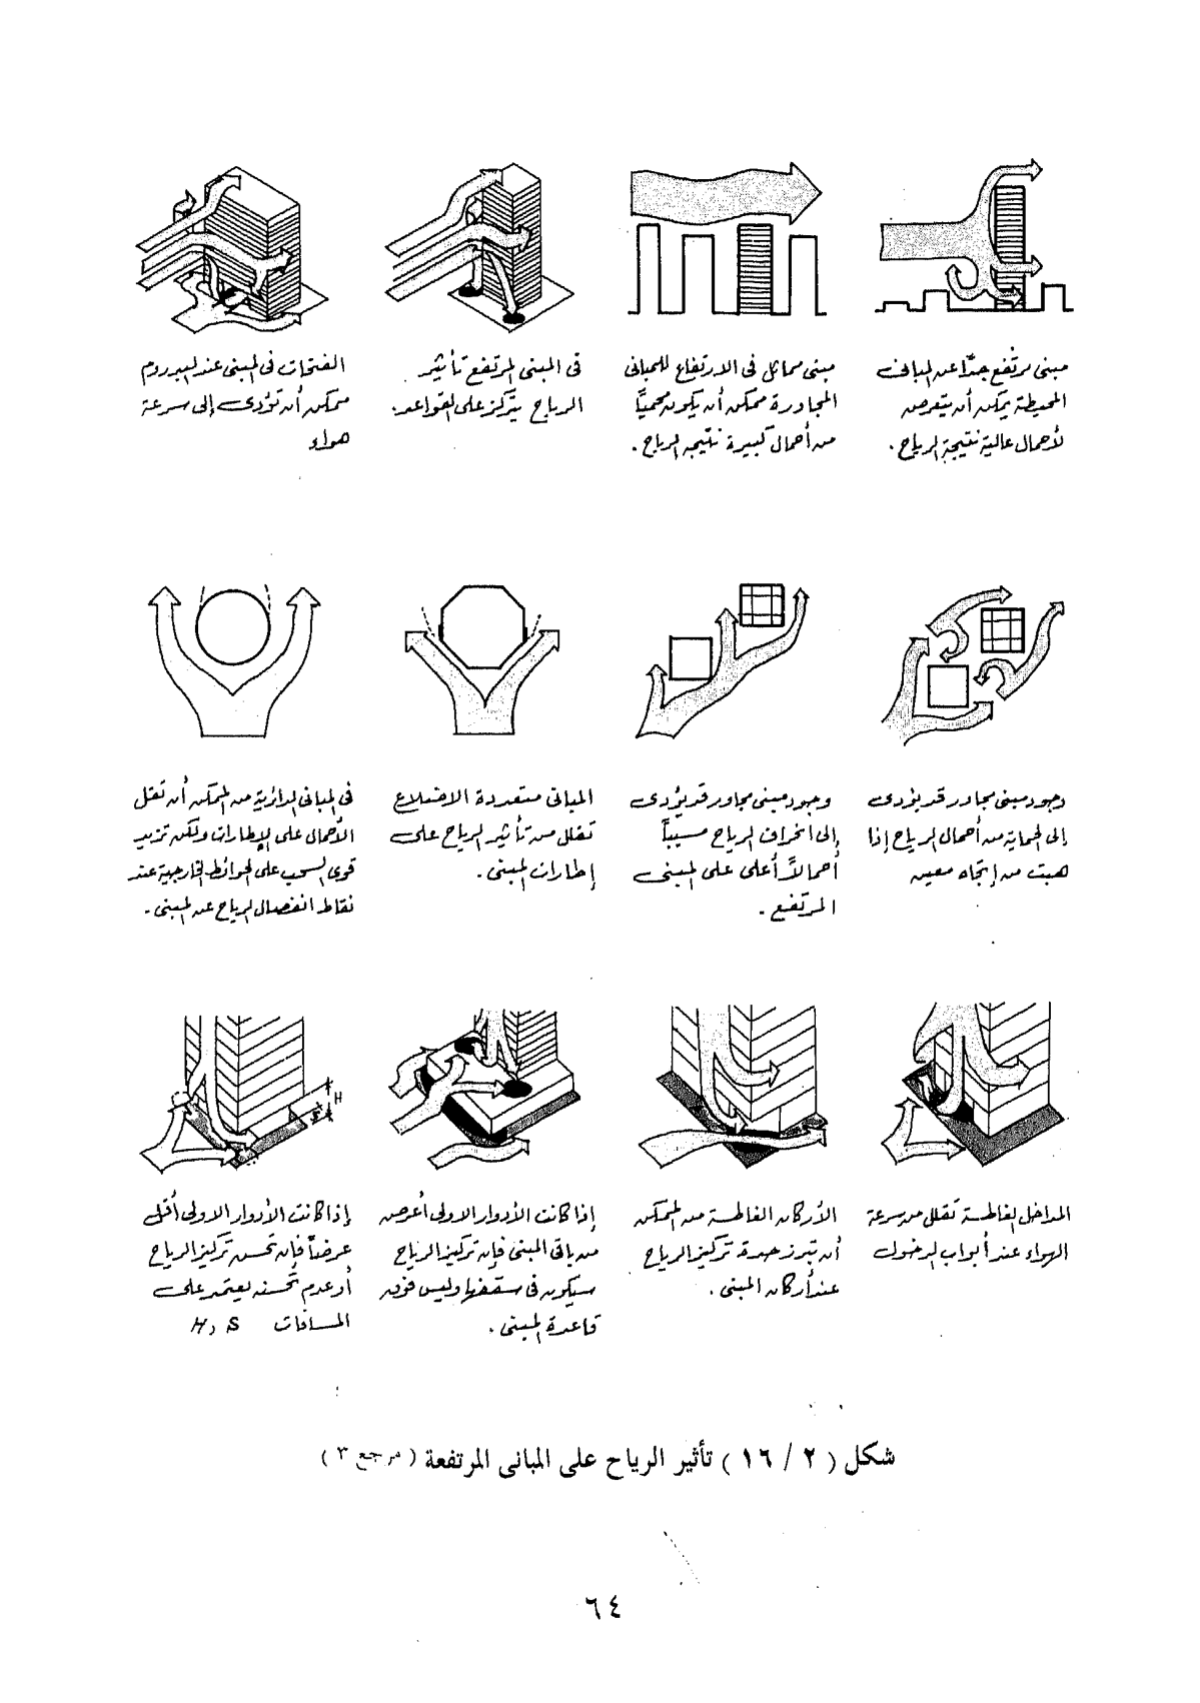 مبنى مرتفع جدًا عن المبانى
المحيطة يمكن أن يتعرض
لأحمال عالية نتيجة الرياح .
مبنى مماثل فى الارتفاع للمبانى
المجاورة ممكن أن يكون محميًا
من أحمال كبيرة نتيجة الرياح .
فى المبنى المرتفع تأثير
الرياح يتركز على القواعد .
الفتحات فى المبنى عند البدروم
ممكن أن تؤدى إلى سرعة
هواء
وجود مبنى مجاور قد يؤدى
إلى الحماية من أحمال الرياح إذا
هبت من إتجاه معين
وجود مبنى مجاور قد يؤدى
إلى انحراف الرياح مسببًا
أحمالاً أعلى على المبنى
المرتفع .
المبانى متعددة الاضلاع
تقلل من تأثير الرياح على
إطارات المبنى .
فى المبانى الدائرية من الممكن أن تقل
الأحمال على الإطارات ولكن تزيد
قوى السحب على الحوائط الخارجية عند
نقاط انفصال الرياح عن المبنى .
H
S
المداخل الغاطسة تقلل من سرعة
الهواء عند أبواب الدخول
الأركان الغاطسة من الممكن
أن تبرز حدة تركيز الرياح
عند أركان المبنى .
إذا كانت الأدوار الاولى أعرض
من باقى المبنى فإن تركيز الرياح
سيكون فى سقفها وليس فوق
قاعدة المبنى .
إذا كانت الأدوار الاولى أقل
عرضًا فإن تحسن تركيز الرياح
أو عدم تحسنه يعتمد على
المسافات H , S
شكل ( ٢ / ١٦ ) تأثير الرياح على المبانى المرتفعة ( مرجع ٣ )
٦٤